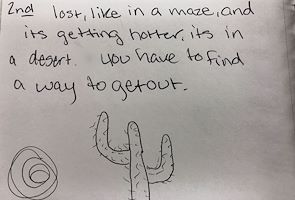 2nd lost, like in a maze, and
its getting hotter, its in
a desert. you have to find
a way to get out.